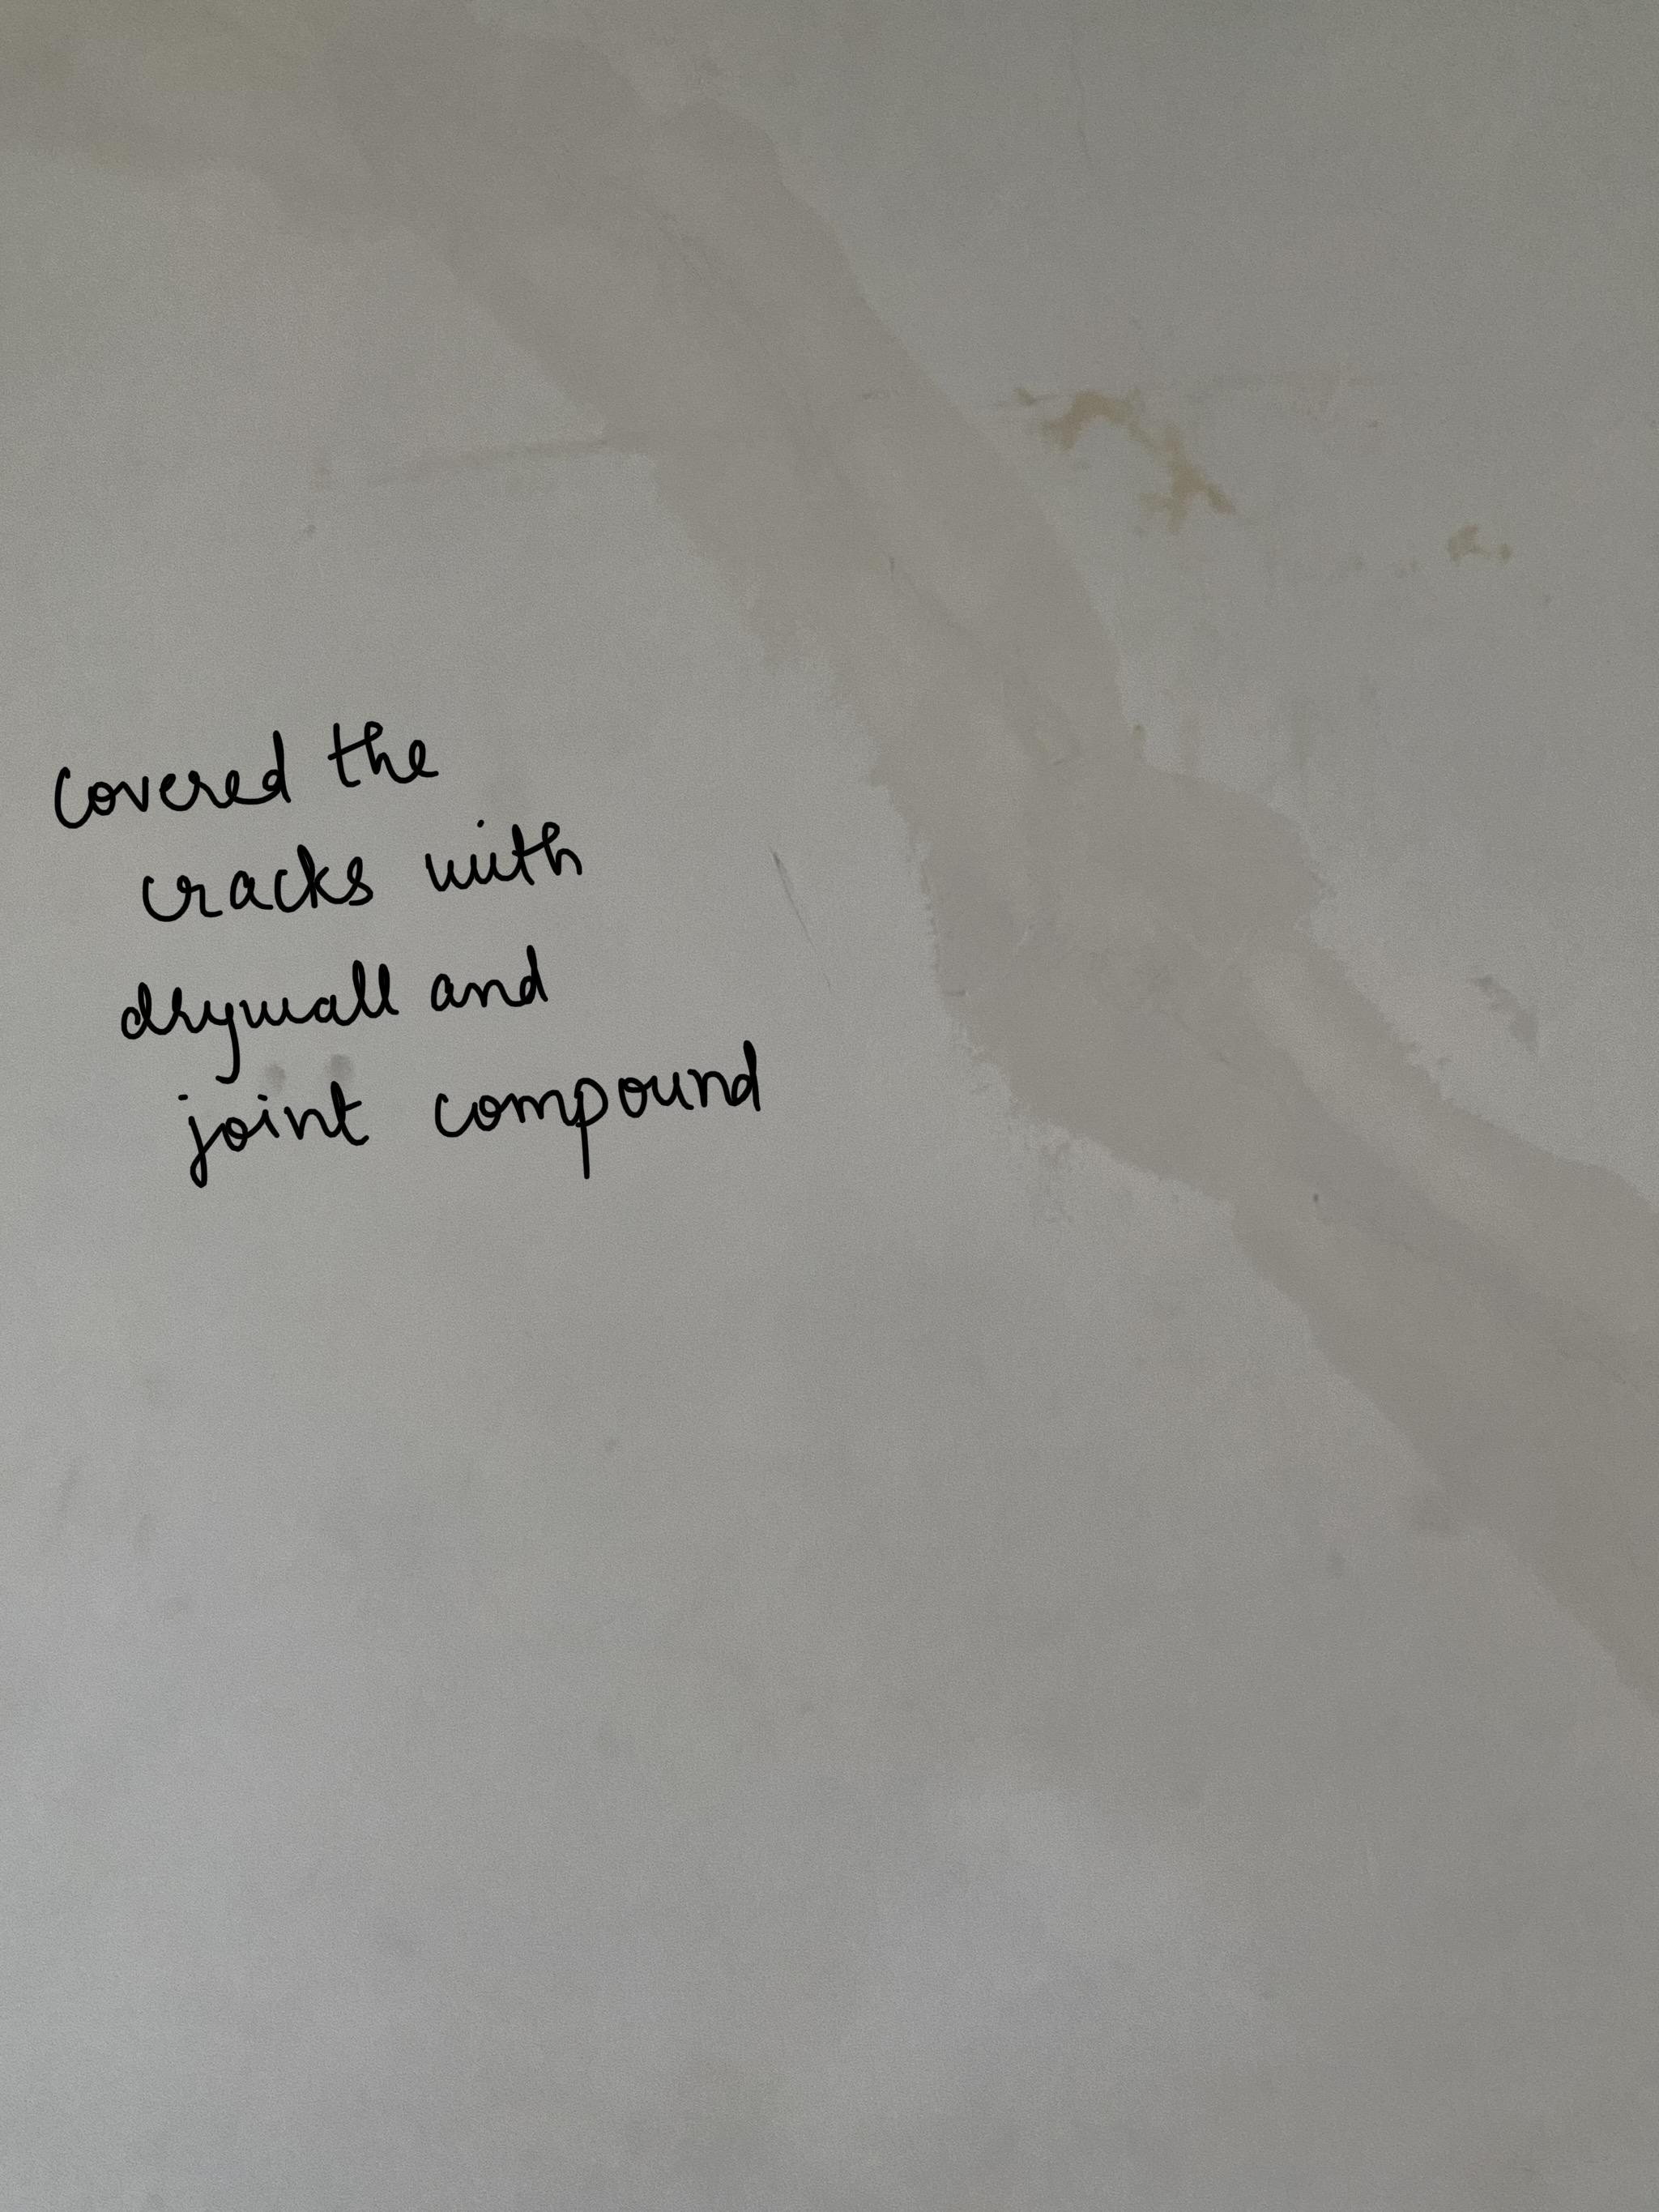 Covered the
cracks with
drywall and
joint compound